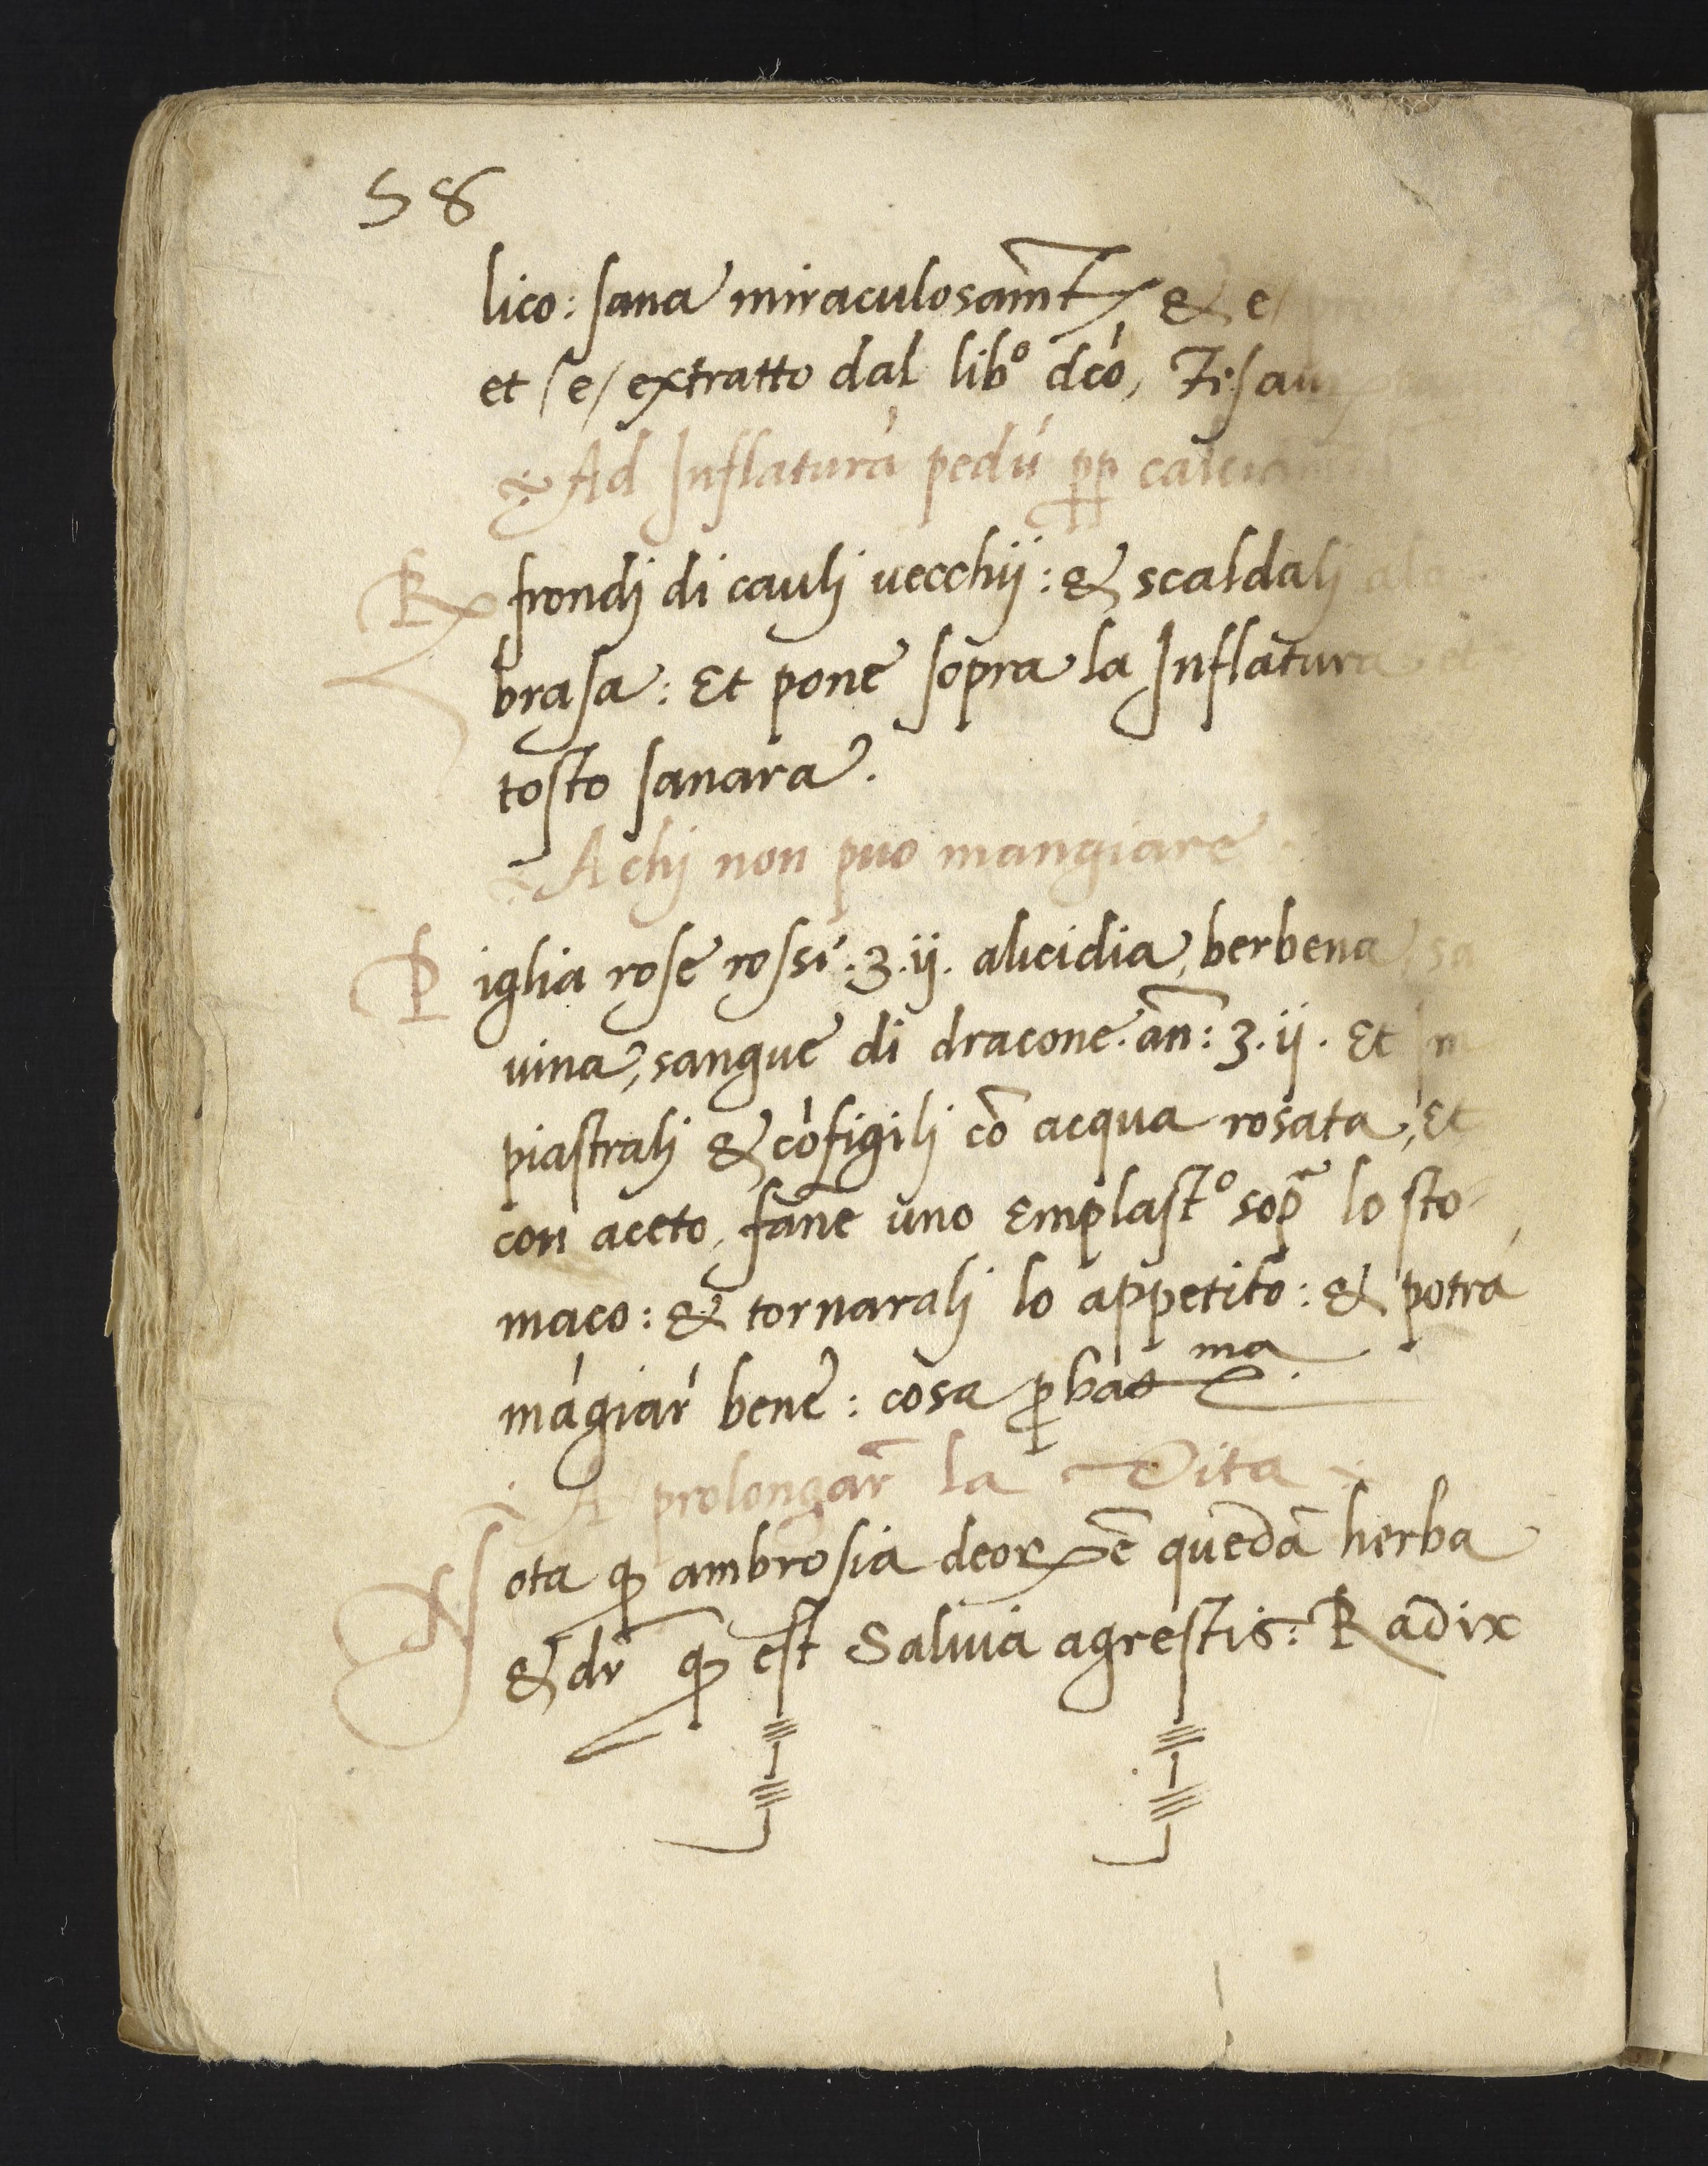 58
lico: sana miraculosam̄t & e/
et /e/ extratto dal libº dcó, Tesau
Ad Inflaturá pedú pp calciam
R frondj di caulj uecchij: & scaldalj ala
brasa: Et pone sopra la Inflatura et
tosto sanara.
A chj non puo mangiare
Piglia rose rosse: ʒ. ij. alicidia, berbena, sa
uina, sangue di dracone. an̄: ʒ. ij. Et Im
piastralj & cófigilj cō acqua rosata, Et
con aceto, fane uno Emplastº sopᵃ lo sto-
maco: & tornaralj lo appetito: & potrá
mágiar bene: cosa ꝓbatma.
A prolongar̄ la Vita
Nota ꝙ ambrosia deoꝝ ē quedā herba
& dr̄ ꝙ est Saluia agrestis: Radix